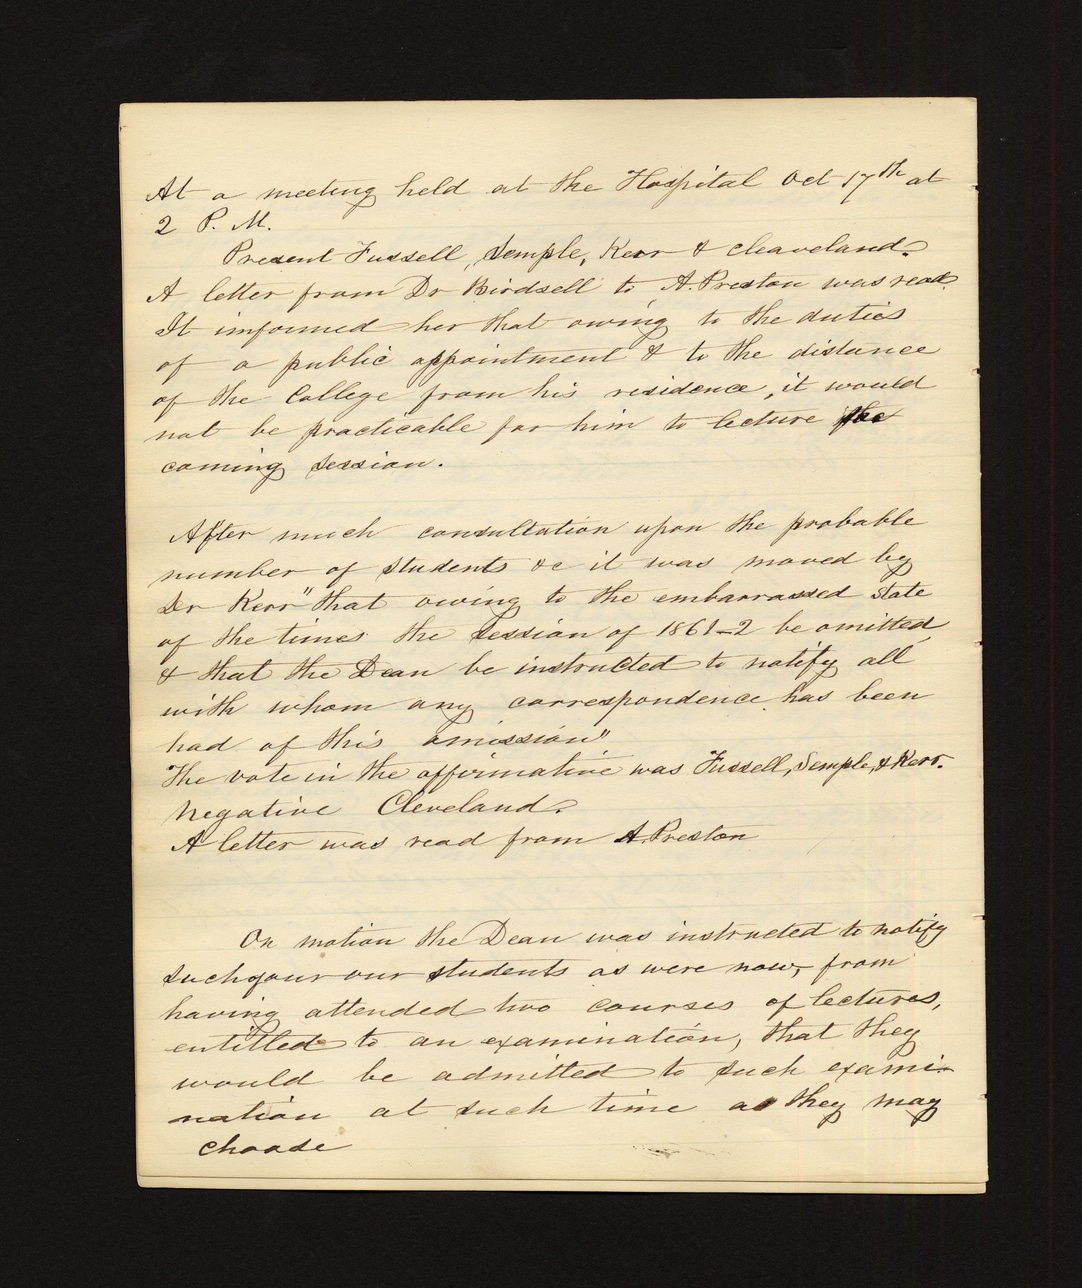 At a meeting held at the Hospital Oct 17th at
2 P. M.
Present Fussell, Semple, Kerr & Cleaveland.
A letter from Dr Birdsell to A. Preston was read.
It informed her that owing to the duties
of a public appointment & to the distance
of the College from his residence, it would
not be practicable for him to lecture the
coming session.
After much consultation upon the probable
number of students &c it was moved by
Dr Kerr "that owing to the embarrassed state
of the times the Session of 1861-2 be omitted,
& that the Dean be instructed to notify all
with whom any correspondence has been
had of this omission"
The vote in the affirmative was Fussell, Semple, & Kerr.
Negative Cleveland.
A letter was read from A. Preston
On motion the Dean was instructed to notify
such our students as were now, from
having attended two courses of lectures,
entitled to an examination, that they
would be admitted to such exami-
nation at such time as they may
choose